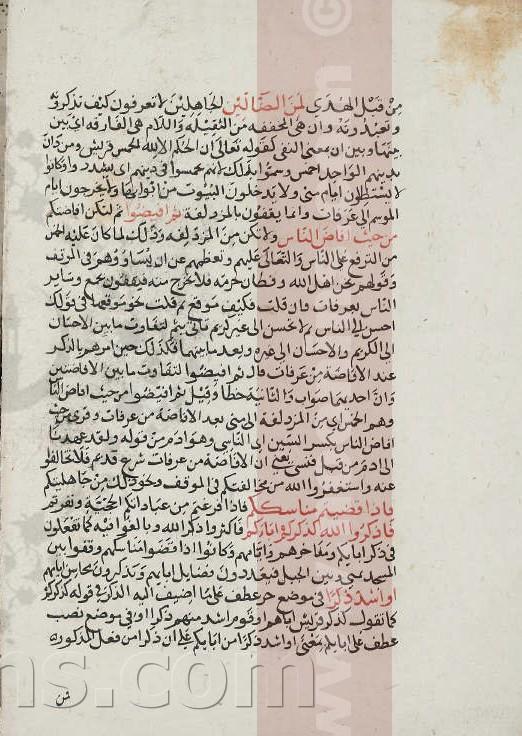 من قبل الهدى لمن الضالين الجاهلين لا تعرفون كيف تذكرونه
وتعبدونه وان هى المخففه من الثقيله واللام هى الفارقه اى بين
بينها وبين ان بمعنى النفى كقوله تعالى ان الحكم الا لله الحمس قريش ومن دان
بدينهم الواحد احمس وسموا بذلك لانهم تحمسوا فى دينهم اى تشددوا وكانوا
لا يستظلون ايام منى ولا يدخلون البيوت من ابوابها ولا يخرجون ايام
الموسم الى عرفات وانما يقفون بالمزدلفة ثم افيضوا ثم لتكن افاضتكم
من حيث افاض الناس ولا تكن من المزدلفه وذلك لما كان عليه الحمس
من الترفع على الناس والتعالى عليهم وتعظمهم عن ان يساووهم فى الموقف
وقولهم نحن اهل الله وقطان حرمه فلا نخرج منه فيقفون بجمع وساير
الناس بعرفات وان قلت فكيف موقع ثم قلت نحو موقعها فى قولك
احسن الى الناس ثم لا تحسن الى غير كريم تاتى بثم لتفاوت ما بين الاحسان
الى الكريم والاحسان الى غيره وبعد ما بينهما فكذلك حين امرهم بالذكر
عند الافاضة من عرفات قال ثم افيضوا لتفاوت ما بين الافاضتين
وان احديهما صواب والثانية خطا وقيل ثم افيضوا من حيث افاض الناس
وهم الحمس اى من المزدلفة الى منى بعد الافاضة من عرفات وقرى من حيث
افاض الناس بكسر السين اى الناسى وهو ادم من قوله ولقد عهدنا
الى ادم من قبل فنسى يعنى ان الافاضة من عرفات شرع قديم فلا تخالفوا
عنه واستغفروا الله من مخالفتكم فى الموقف ونحو ذلك من جاهليتكم
فاذا قضيتم مناسككم فاذا فرغتم من عباداتكم الحجية ونفرتم
فاذكروا الله كذكركم اباءكم فاكثروا ذكر الله وبالغوا فيه كما تفعلون
فى ذكر ابايكم ومفاخرهم وايامهم وكانوا اذا قضوا مناسكهم وقفوا بين
المسجد بمنى وبين الجبل فيعددون فضايل ابايهم ويذكرون محاسن ايامهم
او اشد ذكرا فى موضع جر عطف على ما اضيف اليه الذكر فى قوله كذكركم
كما تقول كذكر قريش اباهم او قوم اشد منهم ذكرا او فى موضع نصب
عطف على اباءكم بمعنى او اشد ذكرا من اباءكم على ان ذكرا من فعل المذكور
www
ns.com